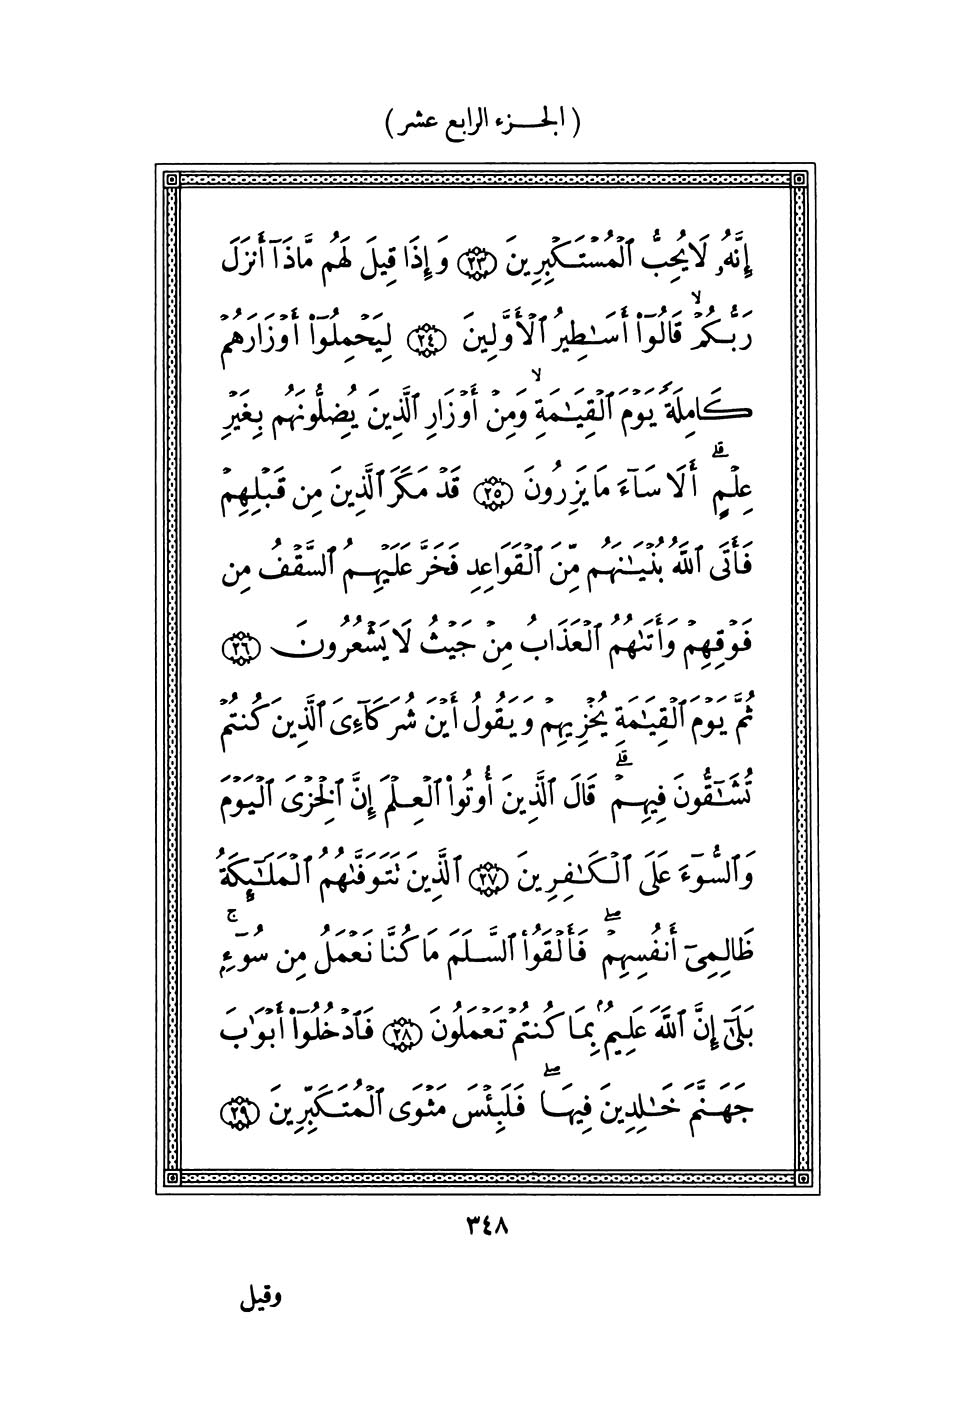 ( الجـــزء الرابع عشر )
إِنَّهُۥ لَا يُحِبُّ ٱلْمُسْتَكْبِرِينَ ﴿٢٣﴾ وَإِذَا قِيلَ لَهُم مَّاذَآ أَنزَلَ
رَبُّكُمْ ۙ قَالُوٓا۟ أَسَـٰطِيرُ ٱلْأَوَّلِينَ ﴿٢٤﴾ لِيَحْمِلُوٓا۟ أَوْزَارَهُمْ
كَامِلَةً يَوْمَ ٱلْقِيَـٰمَةِ ۙ وَمِنْ أَوْزَارِ ٱلَّذِينَ يُضِلُّونَهُم بِغَيْرِ
عِلْمٍ ۗ أَلَا سَآءَ مَا يَزِرُونَ ﴿٢٥﴾ قَدْ مَكَرَ ٱلَّذِينَ مِن قَبْلِهِمْ
فَأَتَى ٱللَّهُ بُنْيَـٰنَهُم مِّنَ ٱلْقَوَاعِدِ فَخَرَّ عَلَيْهِمُ ٱلسَّقْفُ مِن
فَوْقِهِمْ وَأَتَىٰهُمُ ٱلْعَذَابُ مِنْ حَيْثُ لَا يَشْعُرُونَ ﴿٢٦﴾
ثُمَّ يَوْمَ ٱلْقِيَـٰمَةِ يُخْزِيهِمْ وَيَقُولُ أَيْنَ شُرَكَآءِىَ ٱلَّذِينَ كُنتُمْ
تُشَـٰٓقُّونَ فِيهِمْ ۗ قَالَ ٱلَّذِينَ أُوتُوا۟ ٱلْعِلْمَ إِنَّ ٱلْخِزْىَ ٱلْيَوْمَ
وَٱلسُّوٓءَ عَلَى ٱلْكَـٰفِرِينَ ﴿٢٧﴾ ٱلَّذِينَ تَتَوَفَّىٰهُمُ ٱلْمَلَـٰٓئِكَةُ
ظَالِمِىٓ أَنفُسِهِمْ ۖ فَأَلْقَوُا۟ ٱلسَّلَمَ مَا كُنَّا نَعْمَلُ مِن سُوٓءٍۭ ۚ
بَلَىٰٓ إِنَّ ٱللَّهَ عَلِيمٌۢ بِمَا كُنتُمْ تَعْمَلُونَ ﴿٢٨﴾ فَٱدْخُلُوٓا۟ أَبْوَٰبَ
جَهَنَّمَ خَـٰلِدِينَ فِيهَا ۖ فَلَبِئْسَ مَثْوَى ٱلْمُتَكَبِّرِينَ ﴿٢٩﴾
٣٤٨
وقيل